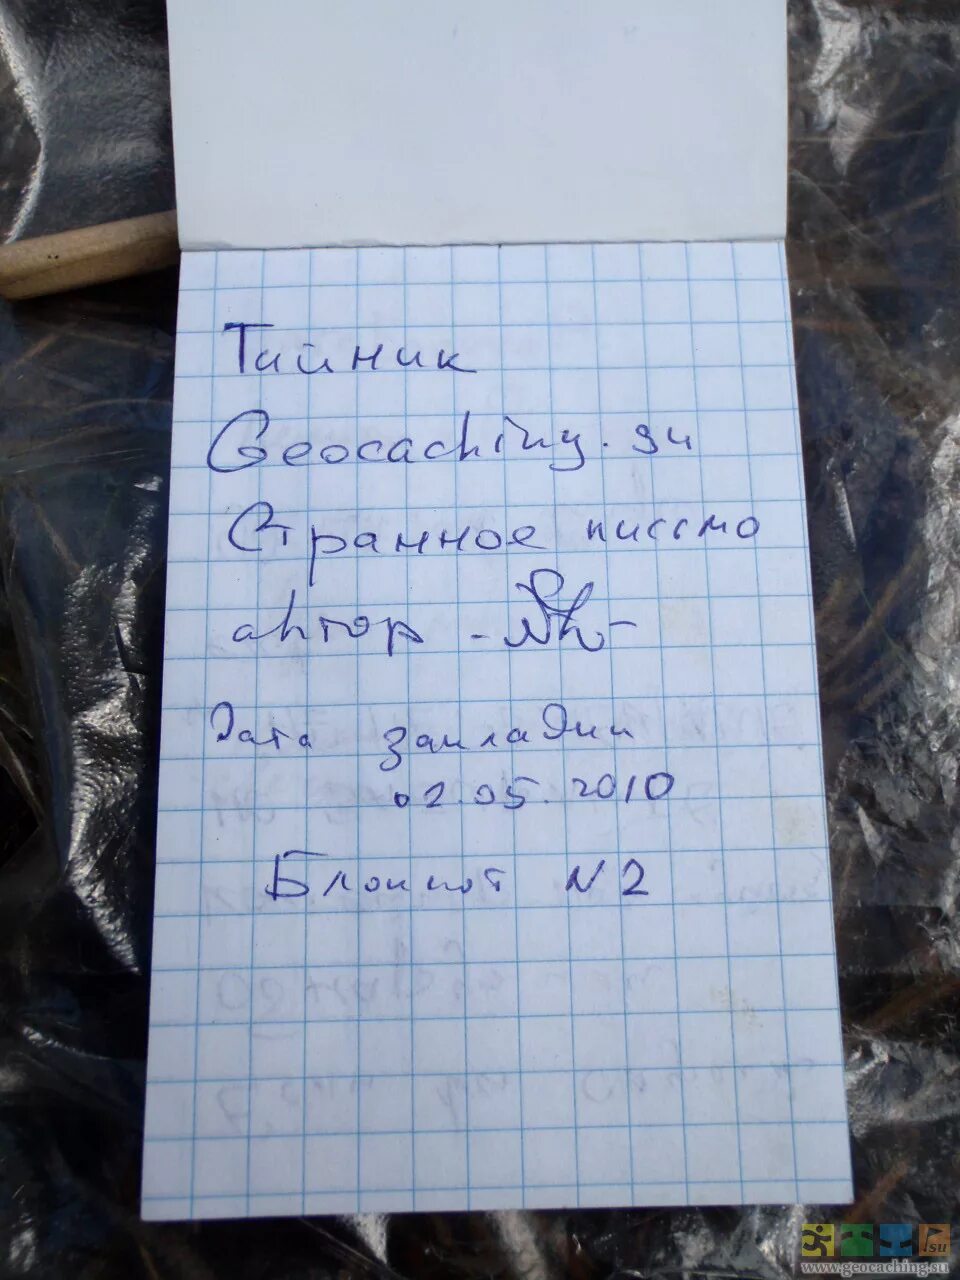 Тайник
Geocaching.su
Странное письмо
автор
Дата закладки
02.05.2010
Блокнот N2
su
www.geocaching.su